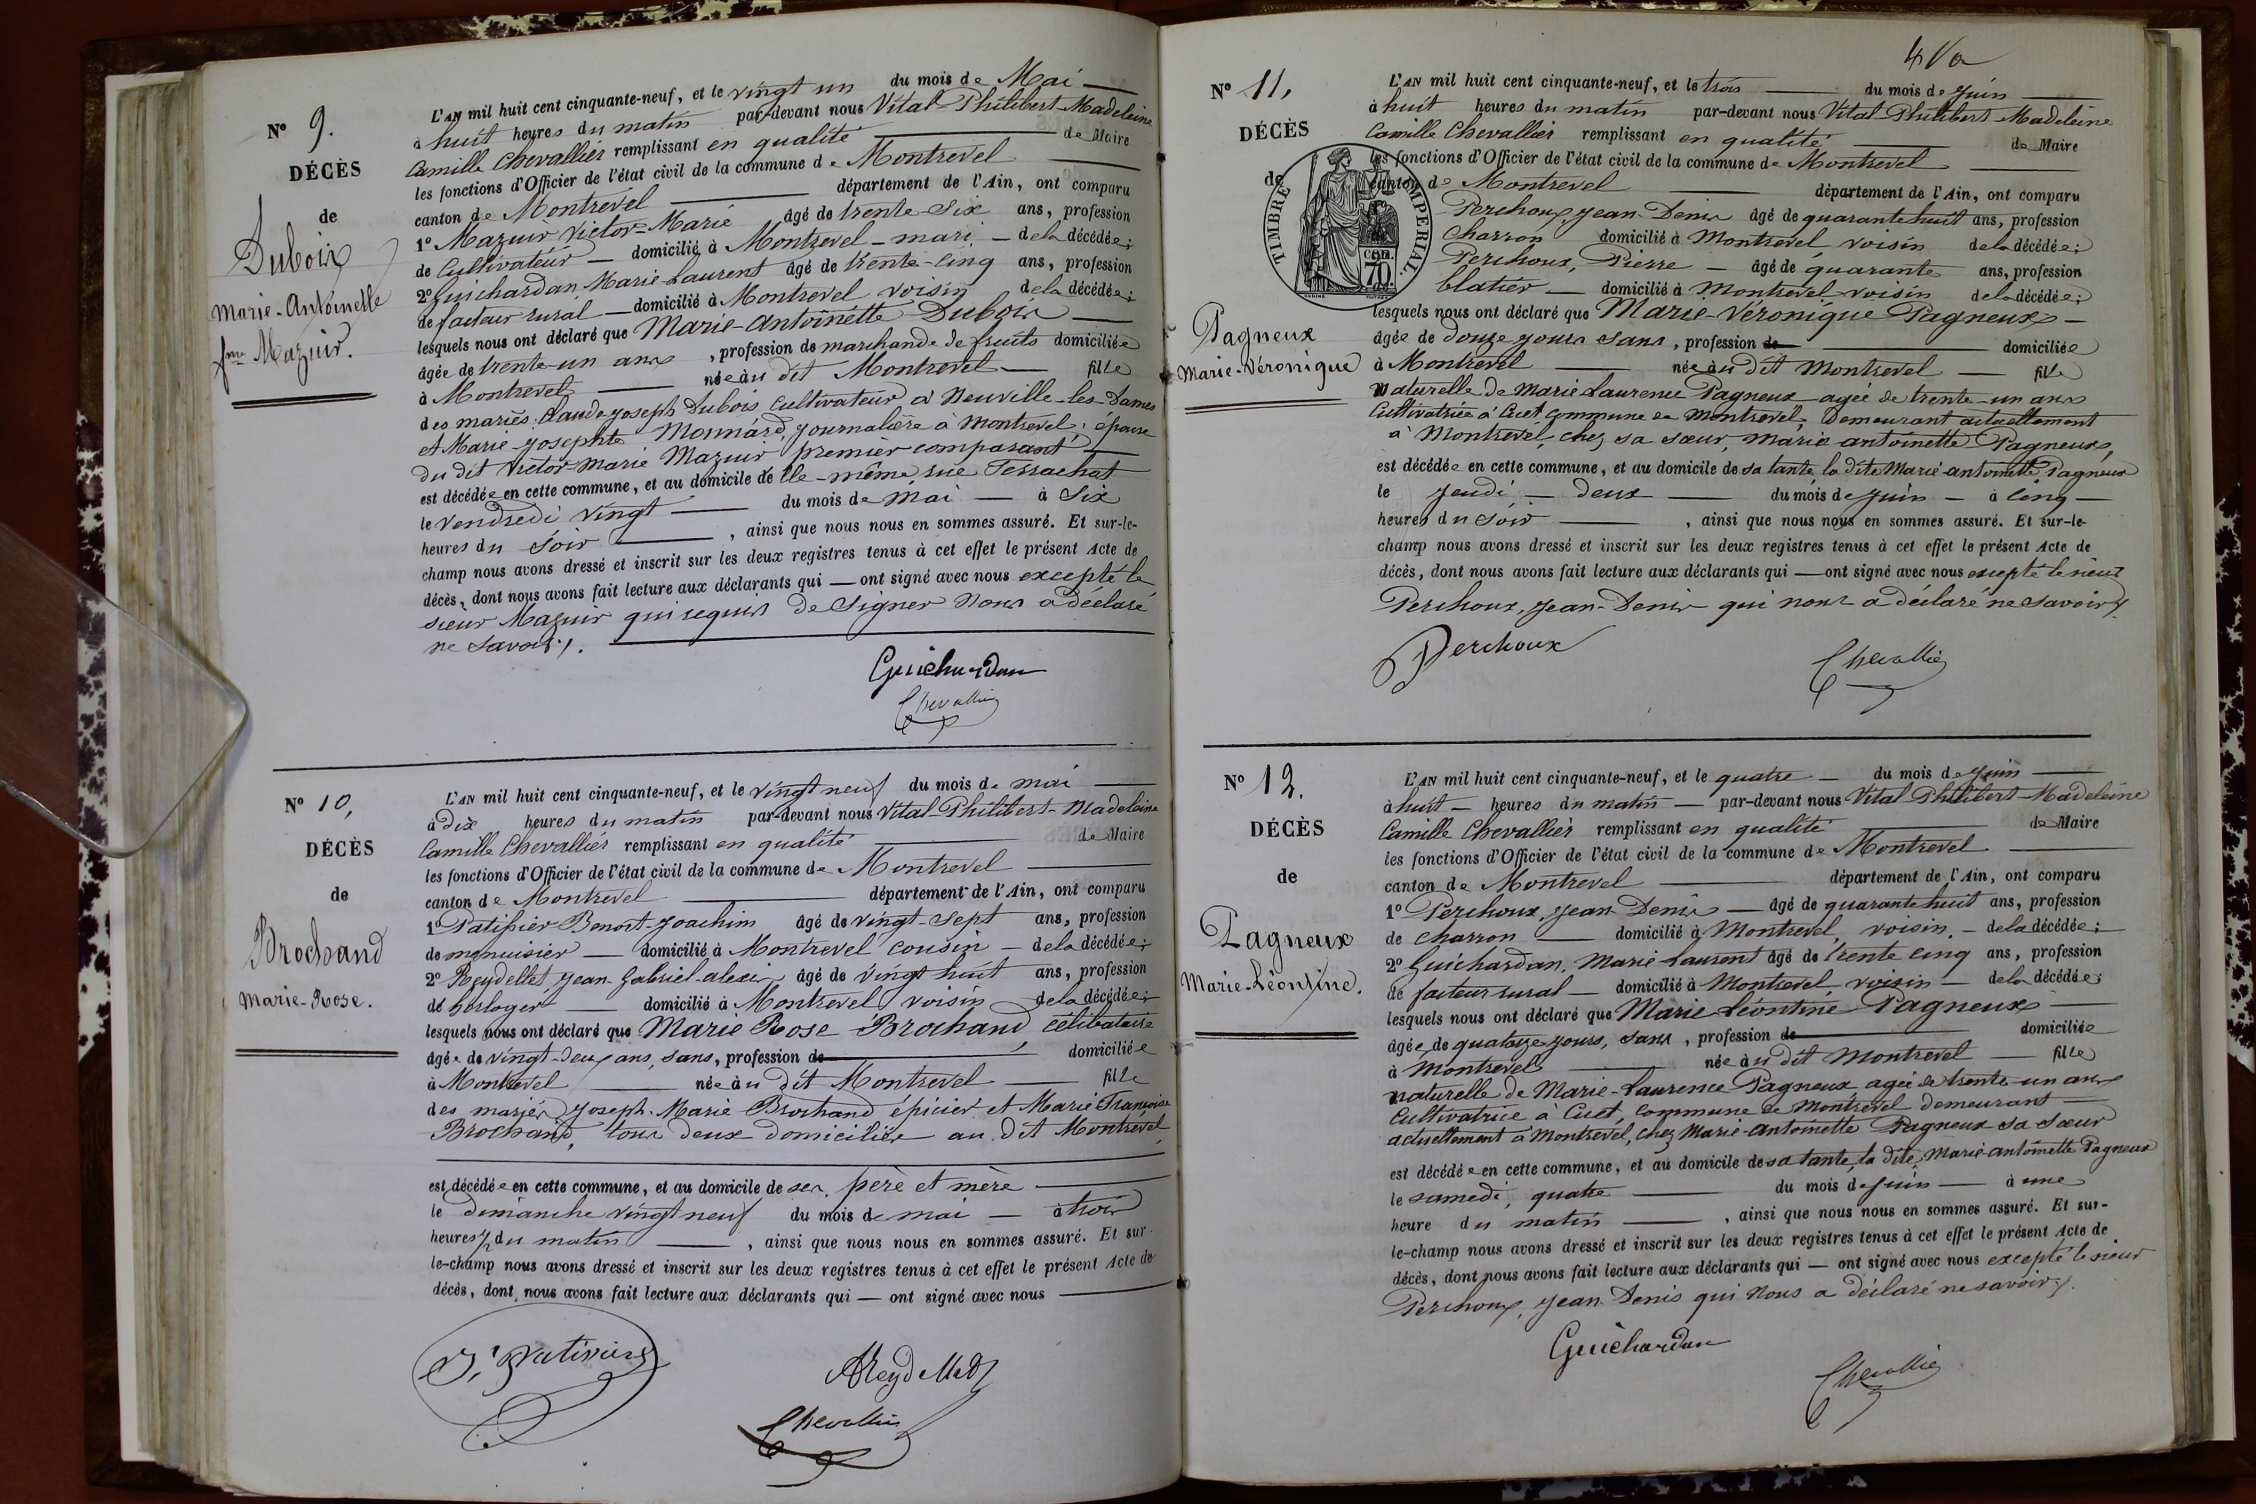 N° 9.
DÉCÈS
de
Dubois
Marie-Antoinette
fme Mazuir.
L'AN mil huit cent cinquante-neuf, et le vingt un du mois de Mai
à huit heures du matin par-devant nous Vital-Philibert-Madeleine
Camille Chevallier remplissant en qualité de Maire
les fonctions d'Officier de l'état civil de la commune de Montrevel
canton de Montrevel département de l'Ain, ont comparu
1° Mazuir Victor-Marie âgé de trente-six ans, profession
de Cultivateur — domicilié à Montrevel - mari - de la décédée;
2° Guichardan Marie-Laurent âgé de trente-cinq ans, profession
de facteur rural — domicilié à Montrevel voisin de la décédée;
lesquels nous ont déclaré que Marie-Antoinette Dubois
âgée de trente-un ans, profession de marchande de fruits domiciliée
à Montrevel née au dit Montrevel — fille
des mariés, Claude joseph Dubois Cultivateur à Neuville-les-Dames
et Marie-josephte Monnard, journalière à Montrevel; épouse
du dit Victor Marie Mazuir premier comparant
est décédée en cette commune, et au domicile de Elle-même, rue Tessachat
le Vendredi vingt du mois de Mai — à Six
heures du soir, ainsi que nous nous en sommes assuré. Et sur-le-
champ nous avons dressé et inscrit sur les deux registres tenus à cet effet le présent Acte de
décès, dont nous avons fait lecture aux déclarants qui — ont signé avec nous excepté le
sieur Mazuir qui requis de signer Nous a déclaré
ne savoir.
Guichardan
Chevallier
N° 10,
DÉCÈS
de
Brochand
Marie-Rose.
L'AN mil huit cent cinquante-neuf, et le vingt neuf du mois de mai
à dix heures du matin par-devant nous Vital-Philibert-Madeleine
Camille Chevallier remplissant en qualité de Maire
les fonctions d'Officier de l'état civil de la commune de Montrevel
canton de Montrevel département de l'Ain, ont comparu
1° Patissier Benoit-joachim âgé de vingt-sept ans, profession
de menuisier — domicilié à Montrevel cousin — de la décédée;
2° Reydellet, jean-Gabriel-alexis, âgé de vingt huit ans, profession
de horloger — domicilié à Montrevel voisin de la décédée;
lesquels nous ont déclaré que Marie Rose Brochand, célibataire
âgée de vingt-deux ans, sans, profession de domiciliée
à Montrevel née au dit Montrevel fille
des mariés joseph-Marie Brochand épicier et Marie Françoise
Brochand, tous deux domiciliés au dit Montrevel
est décédée en cette commune, et au domicile de ses père et mère
le dimanche vingt neuf du mois de mai — à trois
heures ½ du matin, ainsi que nous nous en sommes assuré. Et sur-
le-champ nous avons dressé et inscrit sur les deux registres tenus à cet effet le présent Acte de
décès, dont nous avons fait lecture aux déclarants qui — ont signé avec nous
Chevallier
4
N° 11,
DÉCÈS
de
TIMBRE IMPERIAL
70
Pagneux
Marie-Véronique
L'AN mil huit cent cinquante-neuf, et le trois du mois de juin
à huit heures du matin par-devant nous Vital-Philibert-Madeleine
Camille Chevallier remplissant en qualité de Maire
les fonctions d'Officier de l'état civil de la commune de Montrevel
canton de Montrevel département de l'Ain, ont comparu
Perchoux, jean-Denis âgé de quarante huit ans, profession
Charron domicilié à Montrevel voisin de la décédée;
Perchoux, Pierre — âgé de quarante ans, profession
blatier — domicilié à Montrevel voisin de la décédée;
lesquels nous ont déclaré que Marie-Véronique Pagneux —
âgée de douze jours sans, profession de domiciliée
à Montrevel née au dit Montrevel — fille
naturelle de Marie Laurence Pagneux agée de trente-un ans
Cultivatrice à Cuet Commune de Montrevel, demeurant actuellement
à Montrevel, chez sa sœur, Marie antoinette Pagneux,
est décédée en cette commune, et au domicile de sa tante, la dite Marie antoinette Pagneux
le jeudi — deux du mois de juin — à cinq —
heures du soir, ainsi que nous nous en sommes assuré. Et sur-le-
champ nous avons dressé et inscrit sur les deux registres tenus à cet effet le présent Acte de
décès, dont nous avons fait lecture aux déclarants qui — ont signé avec nous excepté le sieur
Perchoux, jean-Denis qui nous a déclaré ne savoir.
Perchoux
Chevallier
N° 12.
DÉCÈS
de
Pagneux
Marie-Léontine.
L'AN mil huit cent cinquante-neuf, et le quatre — du mois de juin
à huit — heures du matin — par-devant nous Vital-Philibert-Madeleine
Camille Chevallier remplissant en qualité de Maire
les fonctions d'Officier de l'état civil de la commune de Montrevel
canton de Montrevel département de l'Ain, ont comparu
1° Perchoux, jean Denis — âgé de quarante huit ans, profession
de charron — domicilié à Montrevel, voisin. — de la décédée;
2° Guichardan, Marie Laurent âgé de trente cinq ans, profession
de facteur rural — domicilié à Montrevel voisin — de la décédée;
lesquels nous ont déclaré que Marie Léontine Pagneux
âgée de quatorze jours, sans, profession de domiciliée
à Montrevel née au dit Montrevel — fille
naturelle de Marie-Laurence Pagneux agée de trente-un ans
Cultivatrice à Cuet, Commune de Montrevel demeurant
actuellement à Montrevel, chez Marie-Antoinette Pagneux sa sœur
est décédée en cette commune, et au domicile de sa tante, la dite Marie-antoinette Pagneux
le samedi, quatre du mois de juin — à une
heure du matin, ainsi que nous nous en sommes assuré. Et sur-
le-champ nous avons dressé et inscrit sur les deux registres tenus à cet effet le présent Acte de
décès, dont nous avons fait lecture aux déclarants qui — ont signé avec nous excepté le sieur
Perchoux, jean Denis qui Nous a déclaré ne savoir.
Guichardan
Chevallier